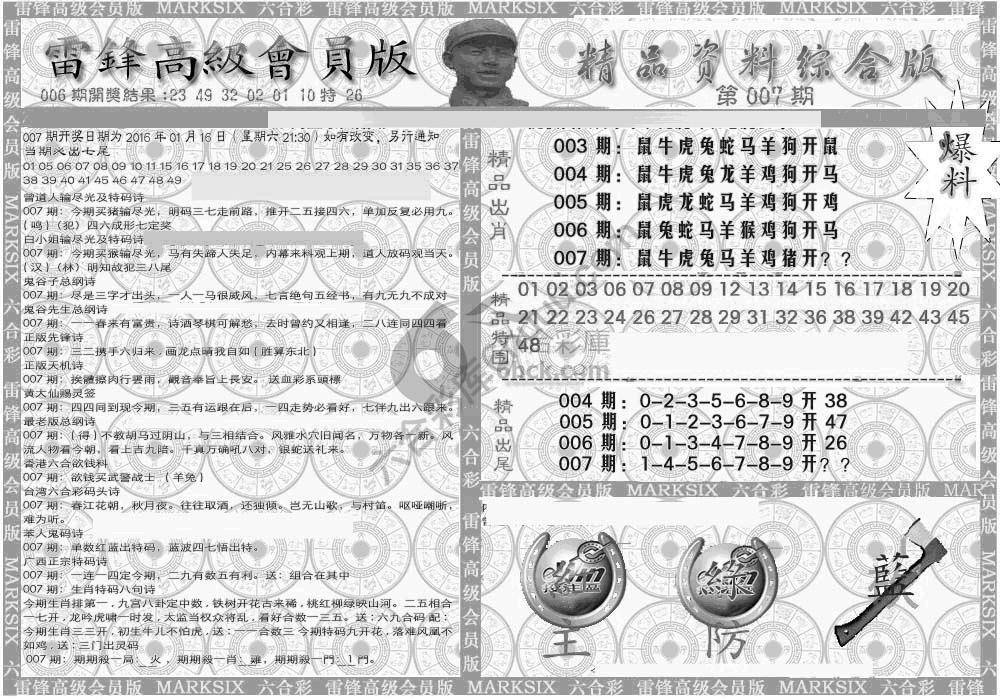 雷锋高级会员版 MARKSIX 六合彩 雷锋高级会员版 MARKSIX 六合彩 雷锋高级会员版 MARKSIX 六合彩 雷锋
雷鋒高級會員版
精品资料综合版
006期開獎結果:23 49 32 02 01 10 特 26
第007期
爆料
007期开奖日期为2016年01月16日(星期六21:30)如有改变,另行通知
当期必出七尾
01 05 06 07 08 09 10 11 15 16 17 18 19 20 21 25 26 27 28 29 30 31 35 36 37
38 39 40 41 45 46 47 48 49
曾道人输尽光及特码诗
007期：今期买猪输尽光，明码三七走前路，推开二五接四六，单加反复必用九。
{鸣}〈犯〉四六成形七定奖
白小姐输尽光及特码诗
007期：今期买猴输尽光，马有失蹄人失足，内幕来料观上期，道人放码观当天。
{汉}〈林〉明知故犯三八尾
鬼谷子总纲诗
007期：尽是三字才出头，一人一马很威风，七言绝句五经书，有九无九不成对
鬼谷先生总纲诗
007期：一一春来有富贵，诗酒琴棋可解愁，去时曾约又相逢，二八连同四四看
正版先锋诗
007期：三二携手六归来﹐画龙点睛我自如{胜算东北}
正版天机诗
007期：挨體擦肉行雲雨，觀音奉旨上長安。送血彩系頭標
黄大仙赐灵签
007期：四四同到现今期，三五有运跟在后，一四走势必看好，七伴九出六跟来。
最老版总纲诗
007期：{得}不教胡马过阴山，与三相结合。风雅水穴旧闻名，万物各一新。风
流人物看今朝，看上吉九陪。千真万确吼八对，银蛇送礼来。
香港六合欲钱料
007期：欲钱买武警战士〈羊兔〉
台湾六合彩码头诗
007期：春江花朝，秋月夜。往往取酒，还独倾。岂无山歌，与村笛。呕哑嘲哳，
难为听。
本人鬼码诗
007期：单数红蓝出特码，蓝波四七悟出特。
广西正宗特码诗
007期：一连一四定今期，二九有数五有利。送：组合在其中
007期：生肖特码八句诗
今期生肖排第一﹐九宫八卦定中数﹐铁树开花古来稀﹐桃红柳绿映山河。二五相合
一七开﹐龙吟虎啸一时发﹐太监当权众将乱﹐看好合数一三五。送：六九合码 配：
今期生肖三三开﹐初生牛儿不怕虎﹐送：一一合数三 今期特码九开花﹐落难凤凰不
如鸡﹐送：三门出灵码
007期：期期殺一局：火，期期殺一肖：雞，期期殺一門：1門。
精品出肖
003期：鼠牛虎兔蛇马羊鸡狗开鼠
004期：鼠牛虎兔龙羊鸡狗开马
005期：鼠虎龙蛇马羊鸡狗开鸡
006期：鼠兔蛇马羊猴鸡狗开马
007期：鼠牛虎兔马羊鸡猪开？？
精品特围
01 02 03 06 07 08 09 12 13 14 15 16 17 18 19 20
21 22 23 24 26 27 28 29 31 32 36 38 39 42 43 45
48
六合彩庫
6hck.com
精品出尾
004期：0-2-3-5-6-8-9 开 38
005期：0-1-2-3-6-7-9 开 47
006期：0-1-3-4-7-8-9 开 26
007期：1-4-5-6-7-8-9 开？？
雷锋高级会员版 MARKSIX 六合彩 雷锋高级会员版 MAR
綠
藍
主
防
雷锋高级会员版 MARKSIX 六合彩 雷锋高级会员版 MARKSIX 六合彩 雷锋高级会员版 MARKSIX 六合彩 雷锋